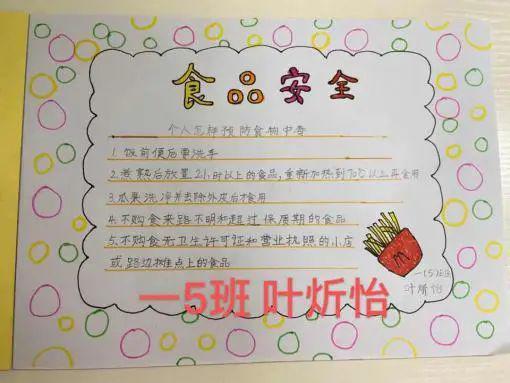 食品安全
个人怎样预防食物中毒
1.饭前便后要洗手
2.煮熟后放置2小时以上的食品,重新加热到70℃以上再食用
3.瓜果洗净并去除外皮后才食用
4.不购食来路不明和超过保质期的食品
5.不购食无卫生许可证和营业执照的小店
或路边摊点上的食品
M
一(5)班
叶炘怡
一5班 叶炘怡